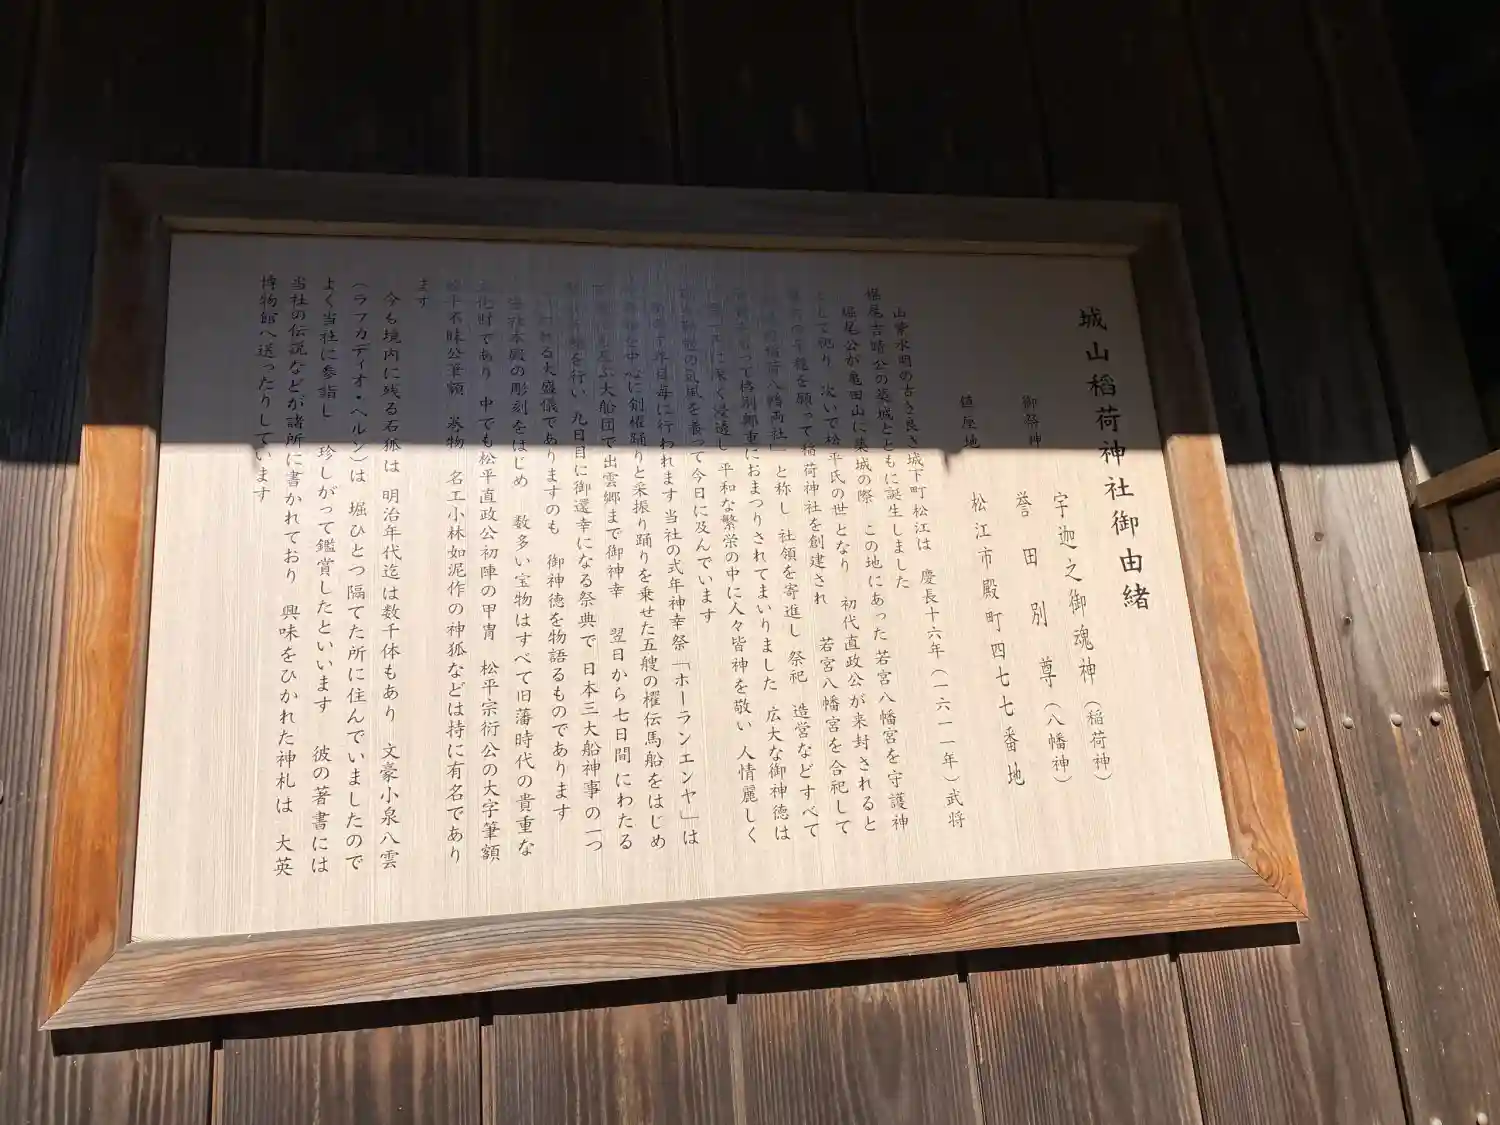 城山稲荷神社御由緒
御祭神 宇迦之御魂神(稲荷神)
誉田別尊(八幡神)
鎮座地 松江市殿町四七七番地
山紫水明の古き良き城下町松江は 慶長十六年(一六一一年)武将
堀尾吉晴公の築城とともに誕生しました
堀尾公が亀田山に築城の際 この地にあった若宮八幡宮を守護神
として祀り 次いで松平氏の世となり 初代直政公が来封されると
を願って稲荷神社を創建され 若宮八幡宮を合祀して
稲荷八幡両社」と称し 社領を寄進し 祭祀 造営などすべて
って格別鄭重におまつりされてまいりました 広大な御神徳は
に深く浸透し 平和な繁栄の中に人々皆神を敬い 人情麗しく
の気風を養って今日に及んでいます
年目毎に行われます当社の式年神幸祭「ホーランエンヤ」は
を中心に剣櫂踊りと采振り踊りを乗せた五艘の櫂伝馬船をはじめ
ぶ大船団で出雲郷まで御神幸 翌日から七日間にわたる
を行い 九日目に御還幸になる祭典で 日本三大船神事の一つ
る大盛儀でありますのも 御神徳を物語るものであります
本殿の彫刻をはじめ 数多い宝物はすべて旧藩時代の貴重な
化財であり 中でも松平直政公初陣の甲冑 松平宗衍公の大字筆額
不昧公筆額 巻物 名工小林如泥作の神狐などは持に有名であり
ます
今も境内に残る石狐は 明治年代迄は数千体もあり 文豪小泉八雲
(ラフカディオ・ヘルン)は 堀ひとつ隔てた所に住んでいましたので
よく当社に参詣し 珍しがって鑑賞したといいます 彼の著書には
当社の伝説などが諸所に書かれており 興味をひかれた神札は 大英
博物館へ送ったりしています